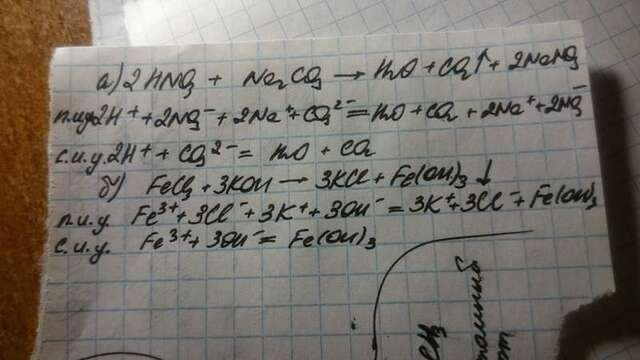 а) 2HNO₃ + Na₂CO₃ → H₂O + CO₂↑ + 2NaNO₃
п.и.у. 2H⁺ + 2NO₃⁻ + 2Na⁺ + CO₃²⁻ = H₂O + CO₂ + 2Na⁺ + 2NO₃⁻
с.и.у. 2H⁺ + CO₃²⁻ = H₂O + CO₂
б) FeCl₃ + 3KOH → 3KCl + Fe(OH)₃↓
п.и.у. Fe³⁺ + 3Cl⁻ + 3K⁺ + 3OH⁻ = 3K⁺ + 3Cl⁻ + Fe(OH)₃
с.и.у. Fe³⁺ + 3OH⁻ = Fe(OH)₃
CH₃